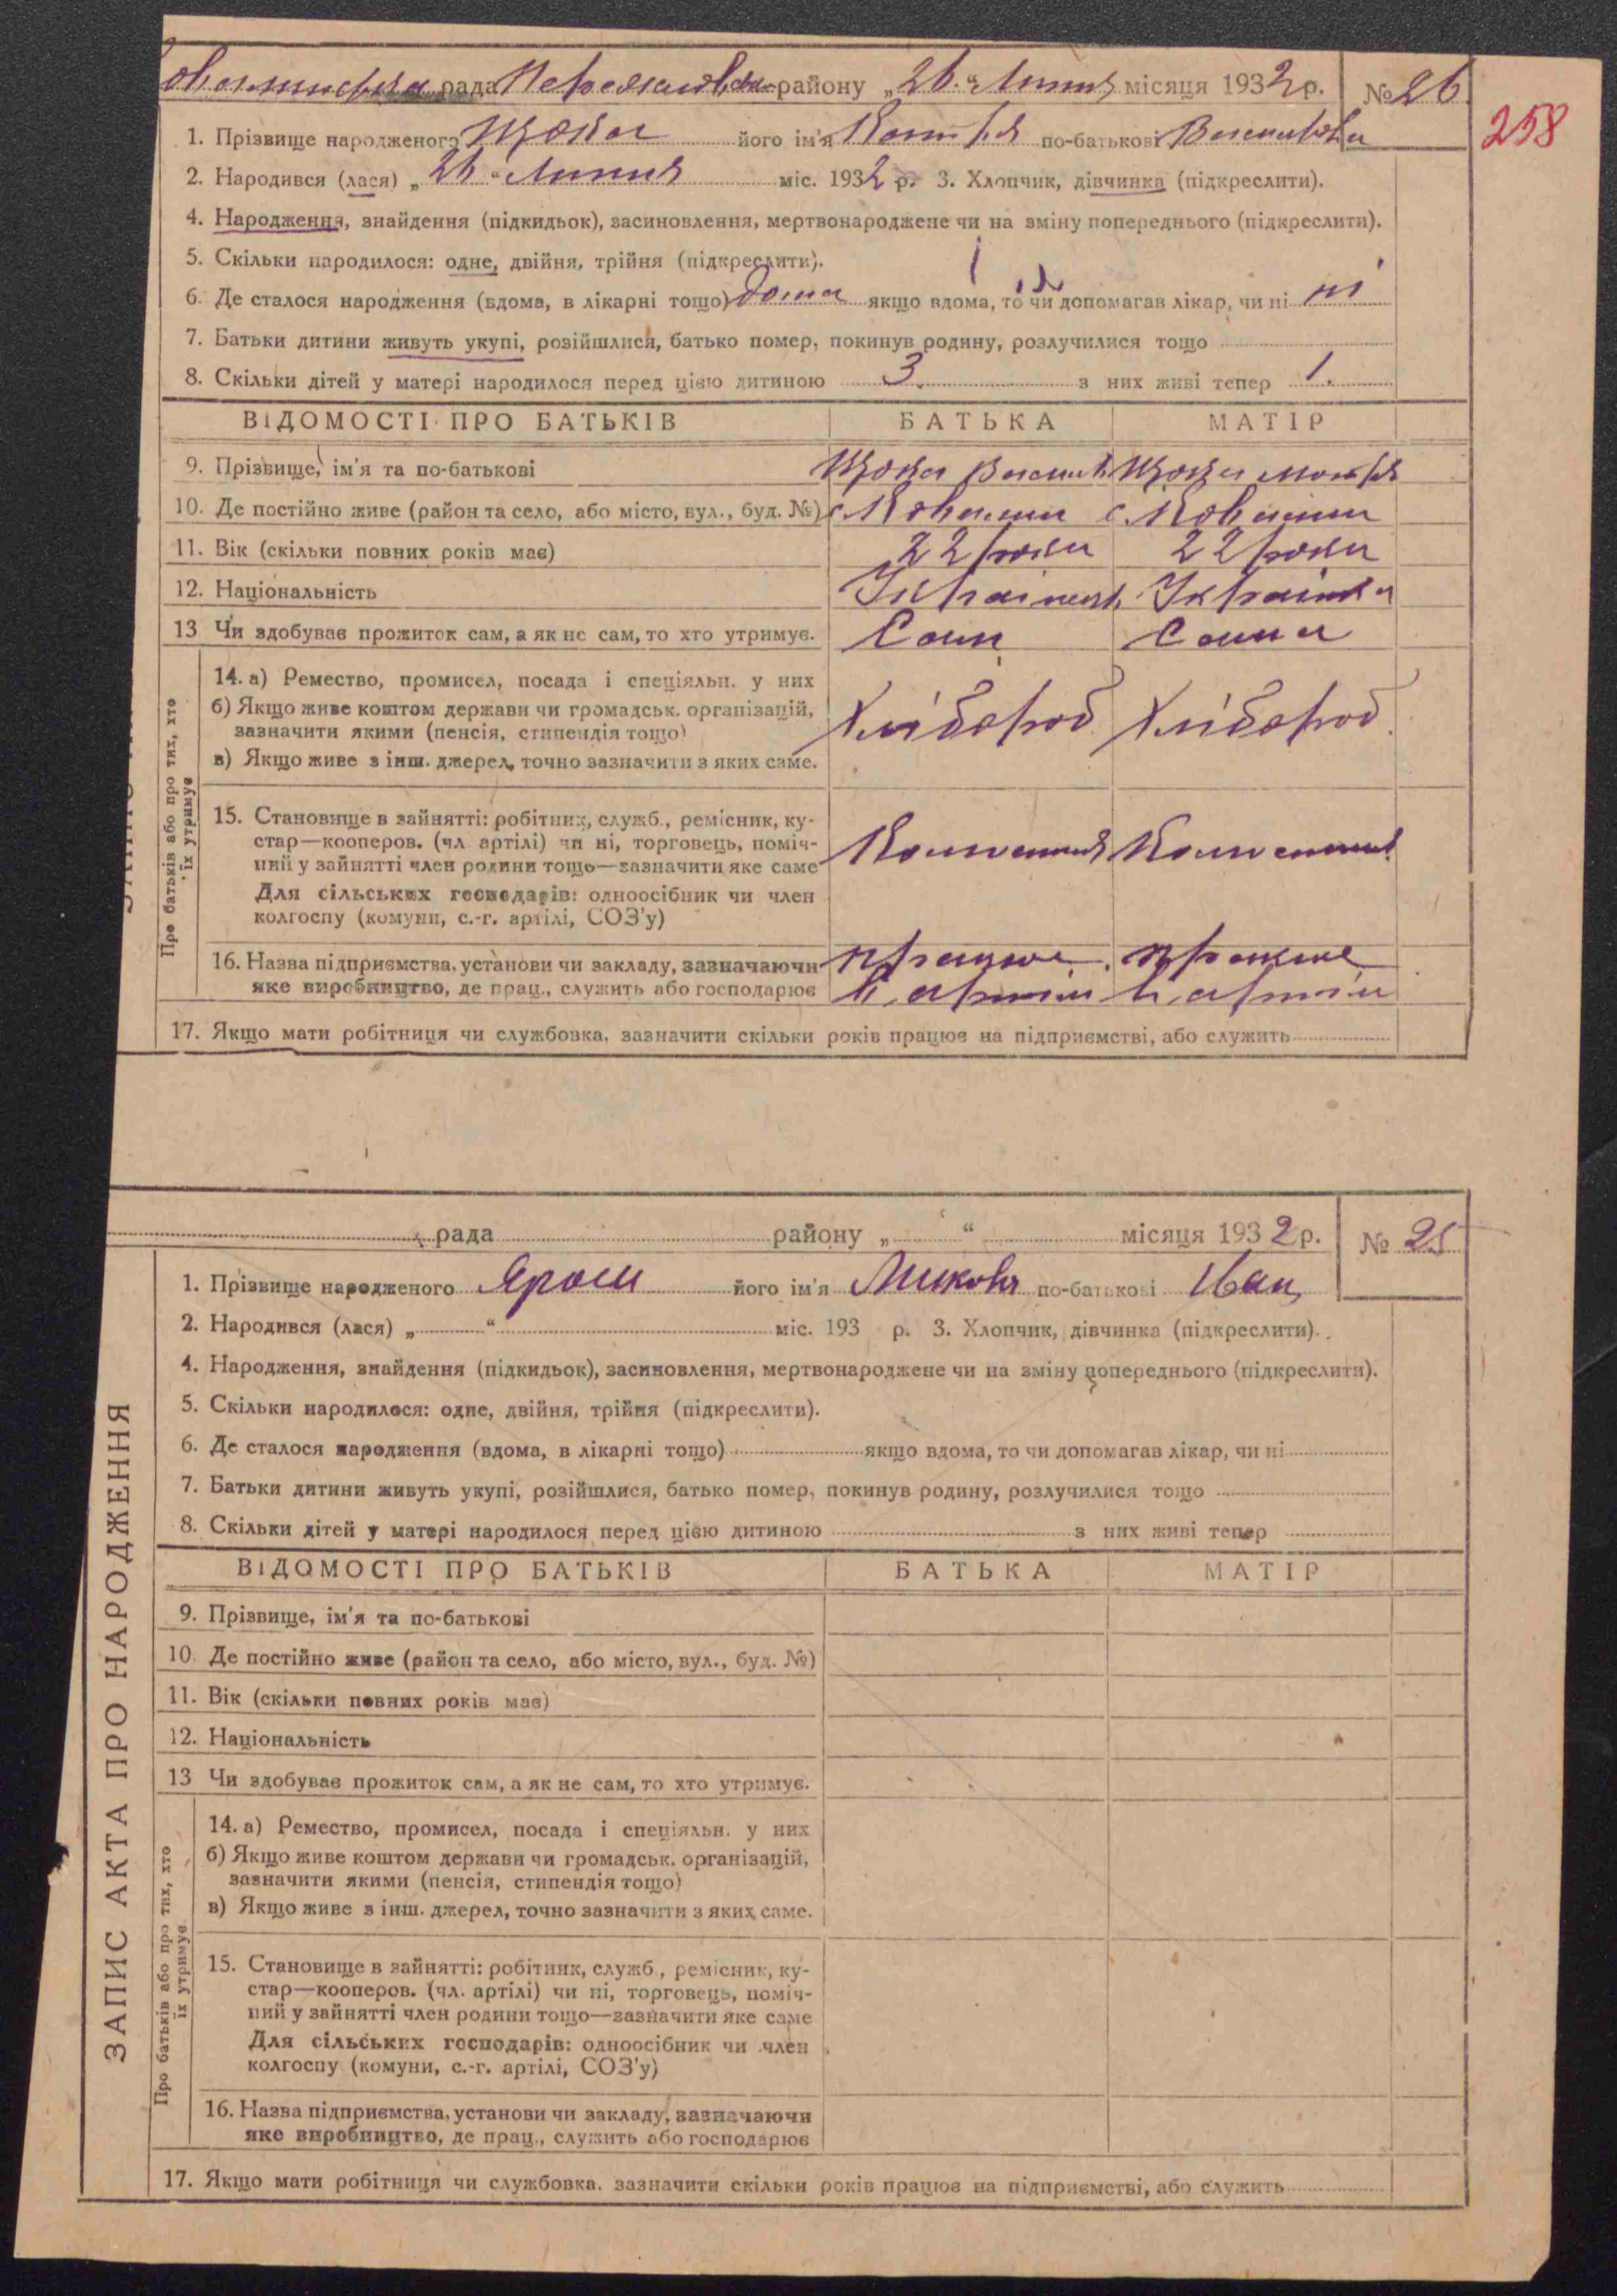 рада Переяславськ району „26“ Липня місяця 1932 р. № 26
258
1. Прізвище народженого Щока його ім'я Катря по-батькові Василівна
2. Народився (лася) „26“ Липня міс. 1932 р. 3. Хлопчик, дівчинка (підкреслити).
4. Народження, знайдення (підкидьок), засиновлення, мертвонароджене чи на зміну попереднього (підкреслити).
5. Скільки народилося: одне, двійня, трійня (підкреслити).
6. Де сталося народження (вдома, в лікарні тощо) дома якщо вдома, то чи допомагав лікар, чи ні ні
7. Батьки дитини живуть укупі, розійшлися, батько помер, покинув родину, розлучилися тощо
8. Скільки дітей у матері народилося перед цією дитиною 3 з них живі тепер 1.
ВІДОМОСТІ ПРО БАТЬКІВ БАТЬКА МАТІР
9. Прізвище, ім'я та по-батькові Щока Васил Щока Мотря
10. Де постійно живе (район та село, або місто, вул., буд. №) с Ковалин с Ковалин
11. Вік (скільки повних років має) 22 роки 22 роки
12. Національність Українець Українка
13 Чи здобуває прожиток сам, а як не сам, то хто утримує. Сам Сама
Про батьків або про тих, хто їх утримує
14. а) Ремество, промисел, посада і спеціяльн. у них
б) Якщо живе коштом держави чи громадськ. організацій,
зазначити якими (пенсія, стипендія тощо) Хлібороб Хлібороб
в) Якщо живе з інш. джерел, точно зазначити з яких саме.
15. Становище в зайнятті: робітник, служб., ремісник, ку-
стар—кооперов. (чл. артілі) чи ні, торговець, поміч-
ний у зайнятті член родини тощо—зазначити яке саме
Для сільських господарів: одноосібник чи член
колгоспу (комуни, с.-г. артілі, СОЗ'у)
16. Назва підприємства, установи чи закладу, зазначаючи працює працює
яке виробництво, де прац., служить або господарює в артіли в артіли
17. Якщо мати робітниця чи службовка, зазначити скільки років працює на підприємстві, або служить
ЗАПИС АКТА ПРО НАРОДЖЕННЯ
рада району „ “ місяця 1932 р. № 25
1. Прізвище народженого Ярош його ім'я Микола по-батькові Іван
2. Народився (лася) „ “ міс. 193 р. 3. Хлопчик, дівчинка (підкреслити).
4. Народження, знайдення (підкидьок), засиновлення, мертвонароджене чи на зміну попереднього (підкреслити).
5. Скільки народилося: одне, двійня, трійня (підкреслити).
6. Де сталося народження (вдома, в лікарні тощо) якщо вдома, то чи допомагав лікар, чи ні
7. Батьки дитини живуть укупі, розійшлися, батько помер, покинув родину, розлучилися тощо
8. Скільки дітей у матері народилося перед цією дитиною з них живі тепер
ВІДОМОСТІ ПРО БАТЬКІВ БАТЬКА МАТІР
9. Прізвище, ім'я та по-батькові
10. Де постійно живе (район та село, або місто, вул., буд. №)
11. Вік (скільки повних років має)
12. Національність
13 Чи здобуває прожиток сам, а як не сам, то хто утримує.
Про батьків або про тих, хто їх утримує
14. а) Ремество, промисел, посада і спеціяльн. у них
б) Якщо живе коштом держави чи громадськ. організацій,
зазначити якими (пенсія, стипендія тощо)
в) Якщо живе з інш. джерел, точно зазначити з яких саме.
15. Становище в зайнятті: робітник, служб., ремісник, ку-
стар—кооперов. (чл. артілі) чи ні, торговець, поміч-
ний у зайнятті член родини тощо—зазначити яке саме
Для сільських господарів: одноосібник чи член
колгоспу (комуни, с.-г. артілі, СОЗ'у)
16. Назва підприємства, установи чи закладу, зазначаючи
яке виробництво, де прац., служить або господарює
17. Якщо мати робітниця чи службовка, зазначити скільки років працює на підприємстві, або служить